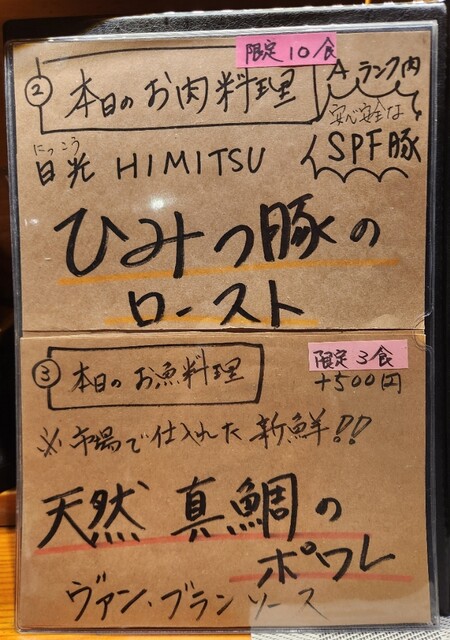 限定10食
② 本日のお肉料理
Aランク肉
安心安全な
SPF豚
にっこう
日光 HIMITSU
ひみつ豚の
ロースト
限定3食
+500円
③ 本日のお魚料理
※市場で仕入れた新鮮!!
天然 真鯛の
ポワレ
ヴァン・ブランソース